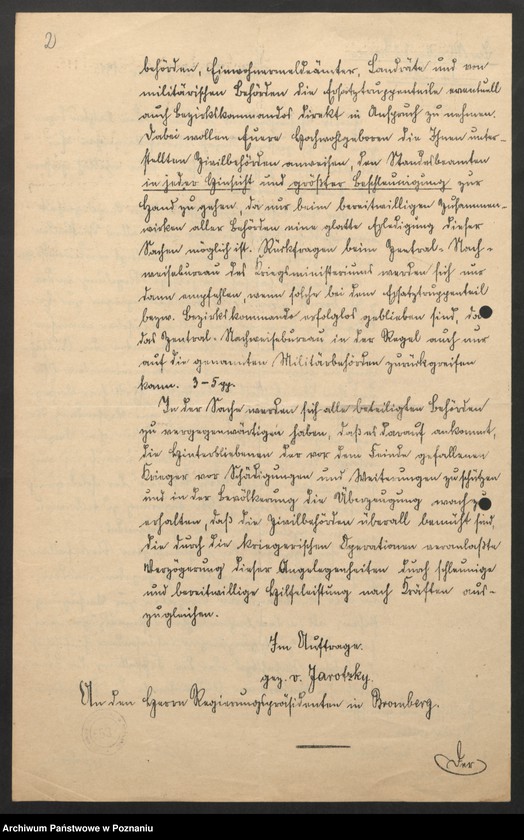 2)
behörden, Einwohnermeldeämter, Landräte und von
militärischen Behörden die Ersatztruppenteile eventuell
auch Bezirkskommandos direkt in Anspruch zu nehmen.
Dabei wollen Euere Hochwohlgeboren die Ihnen unter-
stellten Zivilbehörden anweisen, den Standesbeamten
in jeder Hinsicht und größter Beschleunigung zur
Hand zu gehen, da nur beim bereitwilligen Zusammen-
wirken aller Behörden eine glatte Erledigung dieser
Sachen möglich ist. Rückfragen beim Zentral-Nach-
weisebureau des Kriegsministeriums werden sich nur
dann empfehlen, wenn solche bei dem Ersatztruppenteil
bezw. Bezirkskommando erfolglos geblieben sind, da
das Zentral-Nachweisebureau in der Regel auch nur
auf die genannten Militärbehörden zurückgreifen
kann. 3-5 pp.
In der Sache werden sich alle beteiligten Behörden
zu vergegenwärtigen haben, daß es darauf ankommt,
die Hinterbliebenen der vor dem Feinde gefallenen
Krieger vor Schädigungen und Weiterungen zu schützen
und in der Bevölkerung die Überzeugung wach zu
erhalten, daß die Zivilbehörden überall bemüht sind,
die durch die kriegerischen Operationen veranlaßte
Verzögerung dieser Angelegenheiten durch schleunige
und bereitwillige Hilfeleistung nach Kräften aus-
zugleichen.
Im Auftrage.
gez. v. Jarotzky.
An den Herrn Regierungspräsidenten in Bromberg.
Der
Archiwum Państwowe w Poznaniu
szukajwarchiwach.gov.pl